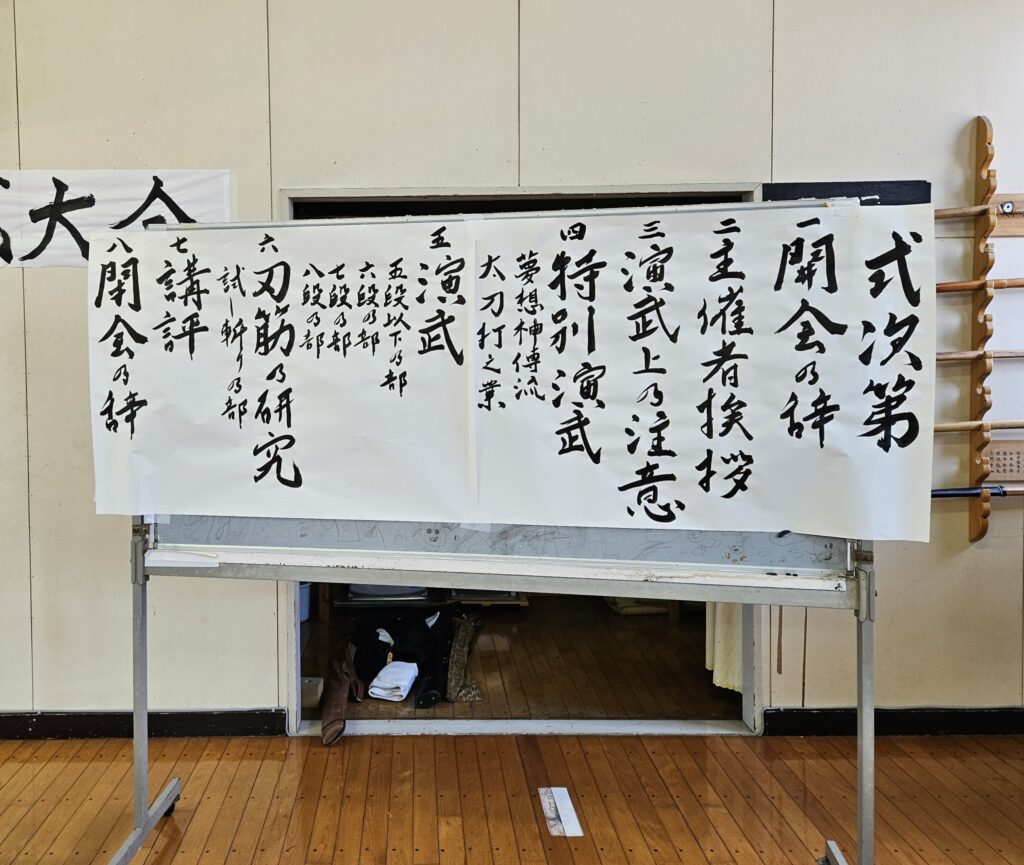 式次第
一 開会の辞
二 主催者挨拶
三 演武上の注意
四 特別演武
夢想神傳流
太刀打之業
五 演武
五段以下の部
六段の部
七段の部
八段の部
六 刃筋の研究
試し斬りの部
七 講評
八 閉会の辞
大会